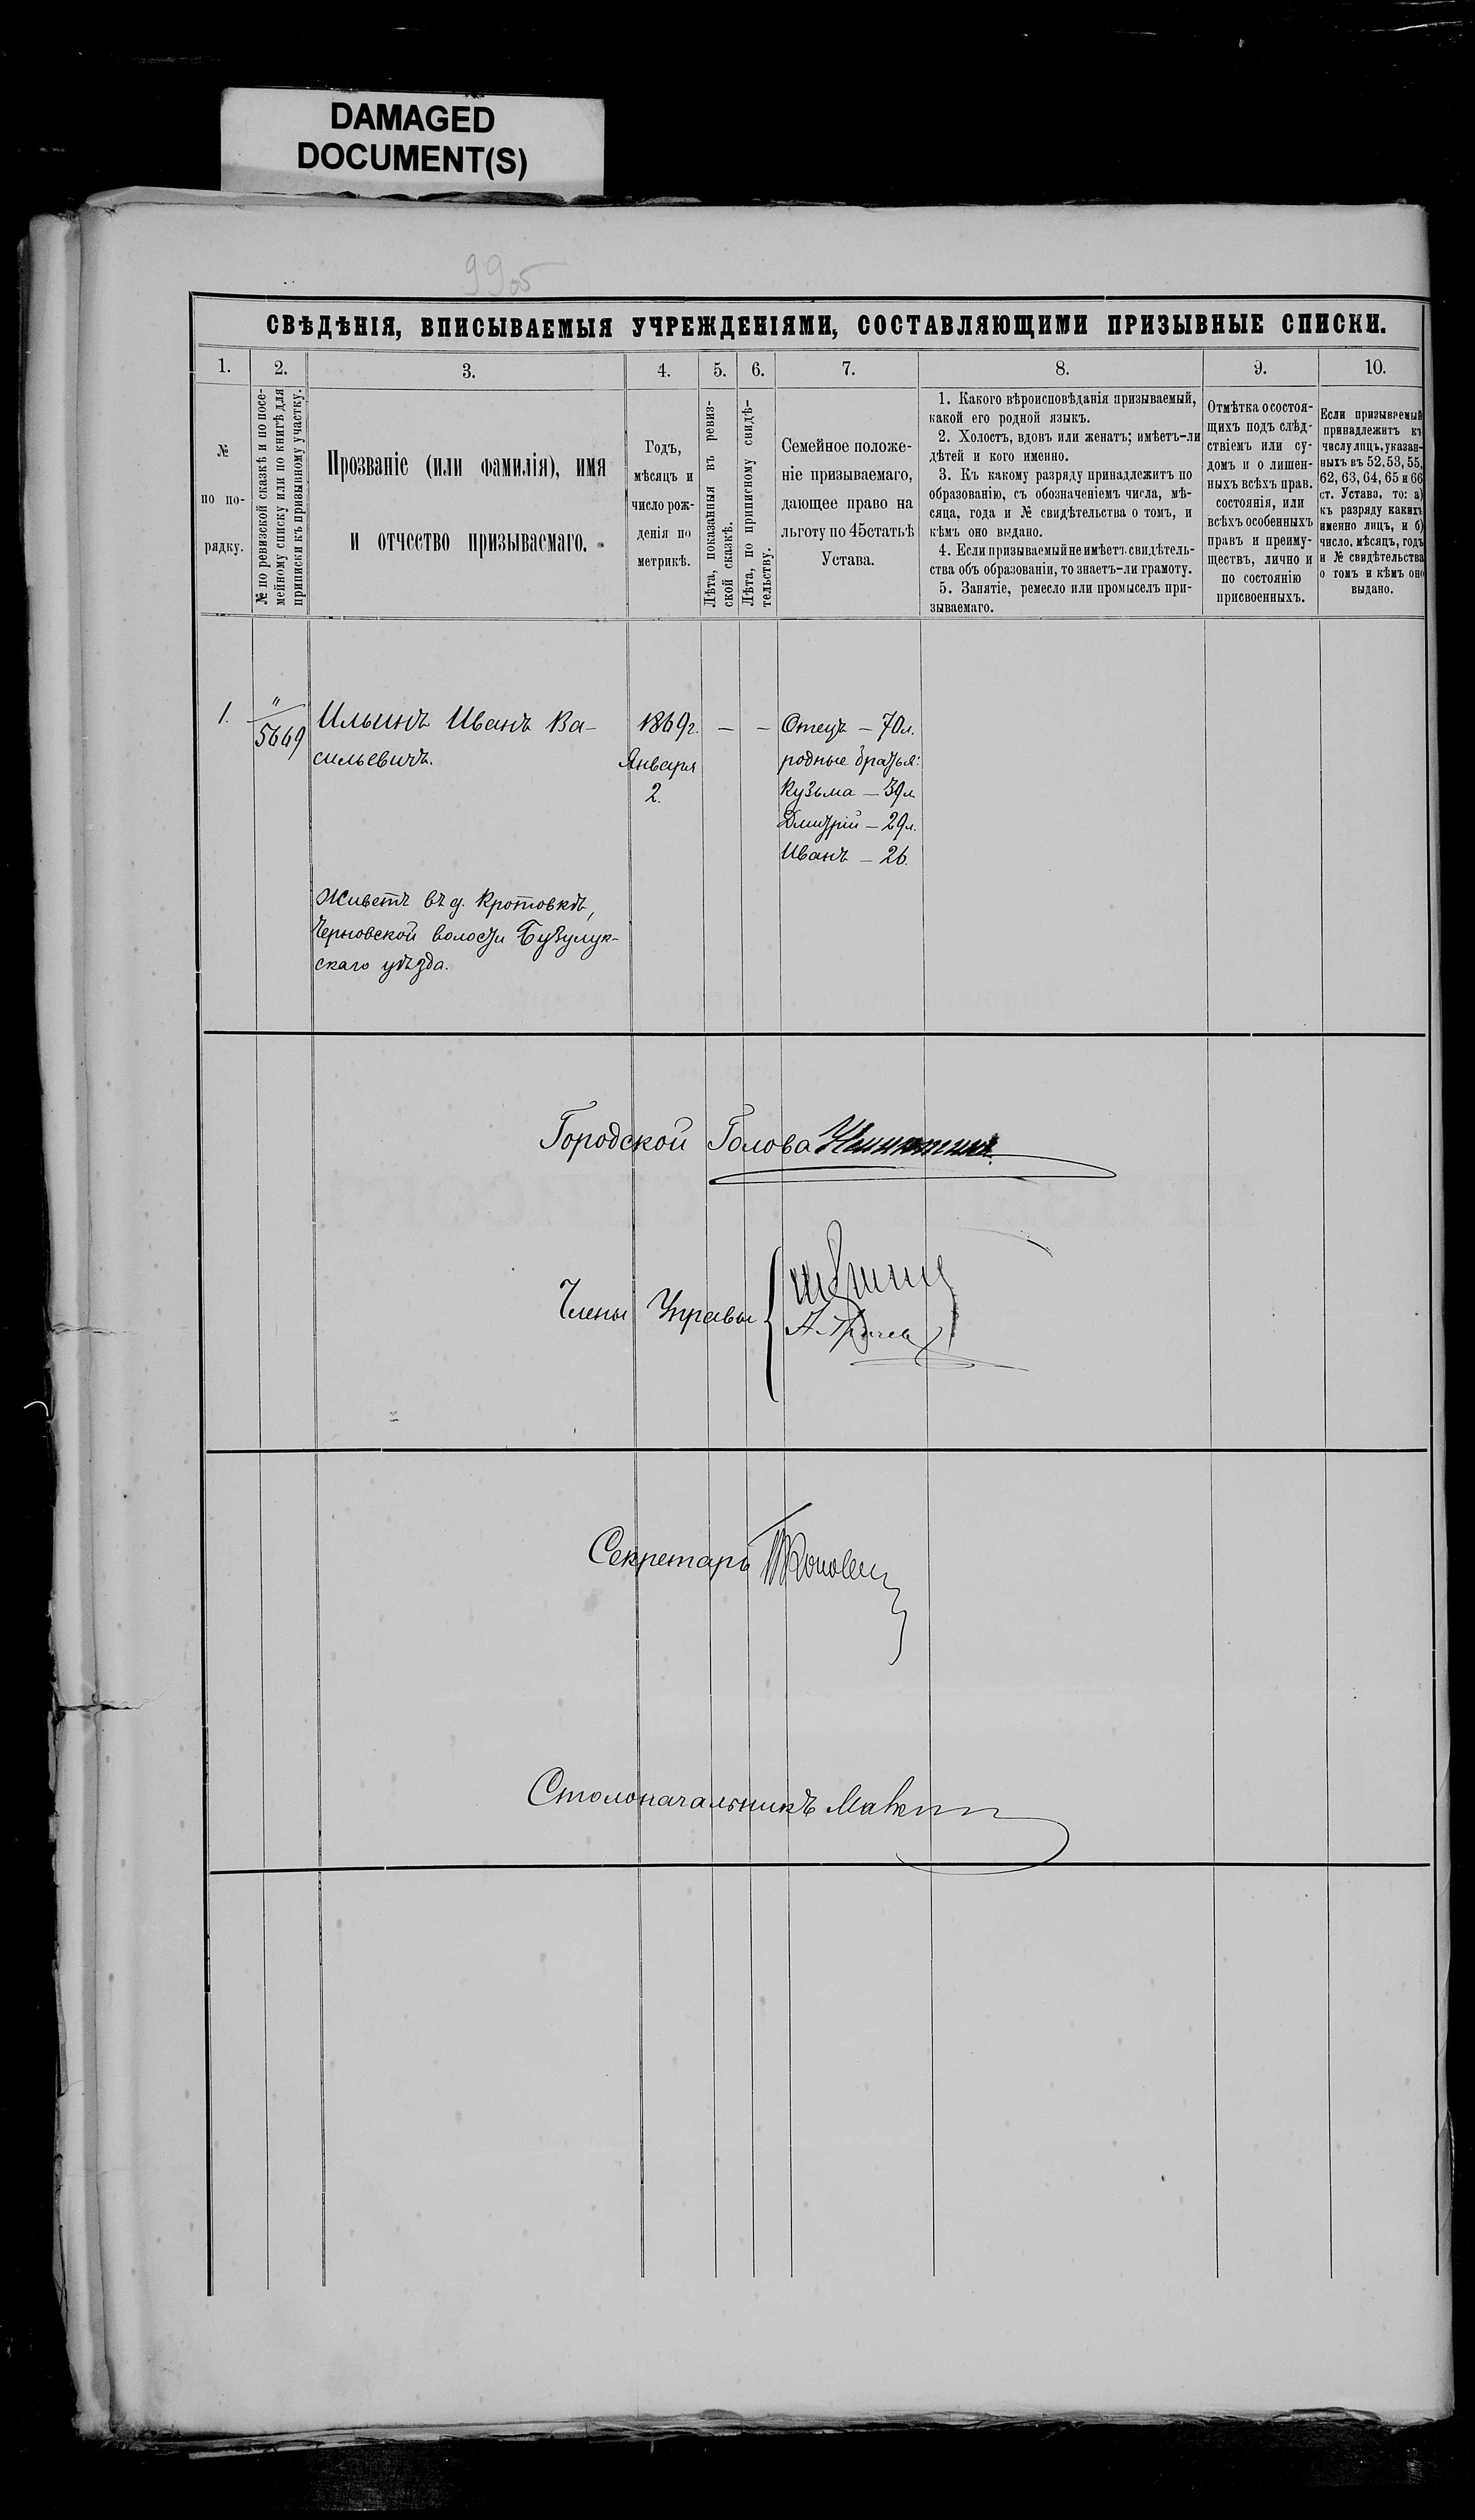 DAMAGED
DOCUMENT(S)
99об
СВѢДѢНІЯ, ВПИСЫВАЕМЫЯ УЧРЕЖДЕНІЯМИ, СОСТАВЛЯЮЩИМИ ПРИЗЫВНЫЕ СПИСКИ.
1.
2.
3.
4.
5.
6.
7.
8.
9.
10.
№
по по-
рядку.
№ по ревизской сказкѣ и по посе-
мейному списку или по книгѣ для
приписки къ призывному участку.
Прозваніе (или фамилія), имя
и отчество призываемаго.
Годъ,
мѣсяцъ и
число рож-
денія по
метрикѣ.
Лѣта, показанныя въ ревиз-
ской сказкѣ.
Лѣта, по приписному свидѣ-
тельству.
Семейное положе-
ніе призываемаго,
дающее право на
льготу по 45статьѣ
Устава.
1. Какого вѣроисповѣданія призываемый,
какой его родной языкъ.
2. Холостъ, вдовъ или женатъ; имѣетъ-ли
дѣтей и кого именно.
3. Къ какому разряду принадлежитъ по
образованію, съ обозначеніемъ числа, мѣ-
сяца, года и № свидѣтельства о томъ, и
кѣмъ оно выдано.
4. Если призываемый не имѣетъ свидѣтель-
ства объ образованіи, то знаетъ-ли грамоту.
5. Занятіе, ремесло или промыселъ при-
зываемаго.
Отмѣтка о состоя-
щихъ подъ слѣд-
ствіемъ или су-
домъ и о лишен-
ныхъ всѣхъ прав.
состоянія, или
всѣхъ особенныхъ
правъ и преиму-
ществъ, лично и
по состоянію
присвоенныхъ.
Если призываемый
принадлежитъ къ
числу лицъ, указан-
ныхъ въ 52, 53, 55,
62, 63, 64, 65 и 66
ст. Устава, то: а)
къ разряду какихъ
именно лицъ, и б)
число, мѣсяцъ, годъ
и № свидѣтельства
о томъ и кѣмъ оно
выдано.
1.
"
5669
Ильинъ Иванъ Ва-
сильевичъ.
1869г.
Января
2.
—
—
Отецъ — 70л.
родные братья:
Кузьма — 39л
Дмитрій — 29л.
Иванъ — 26.
Живетъ въ д. Кротовкѣ,
Черновской волости Бузулук-
скаго уѣзда.
Городской Голова
Члены Управы
Секретарь
Столоначальникъ